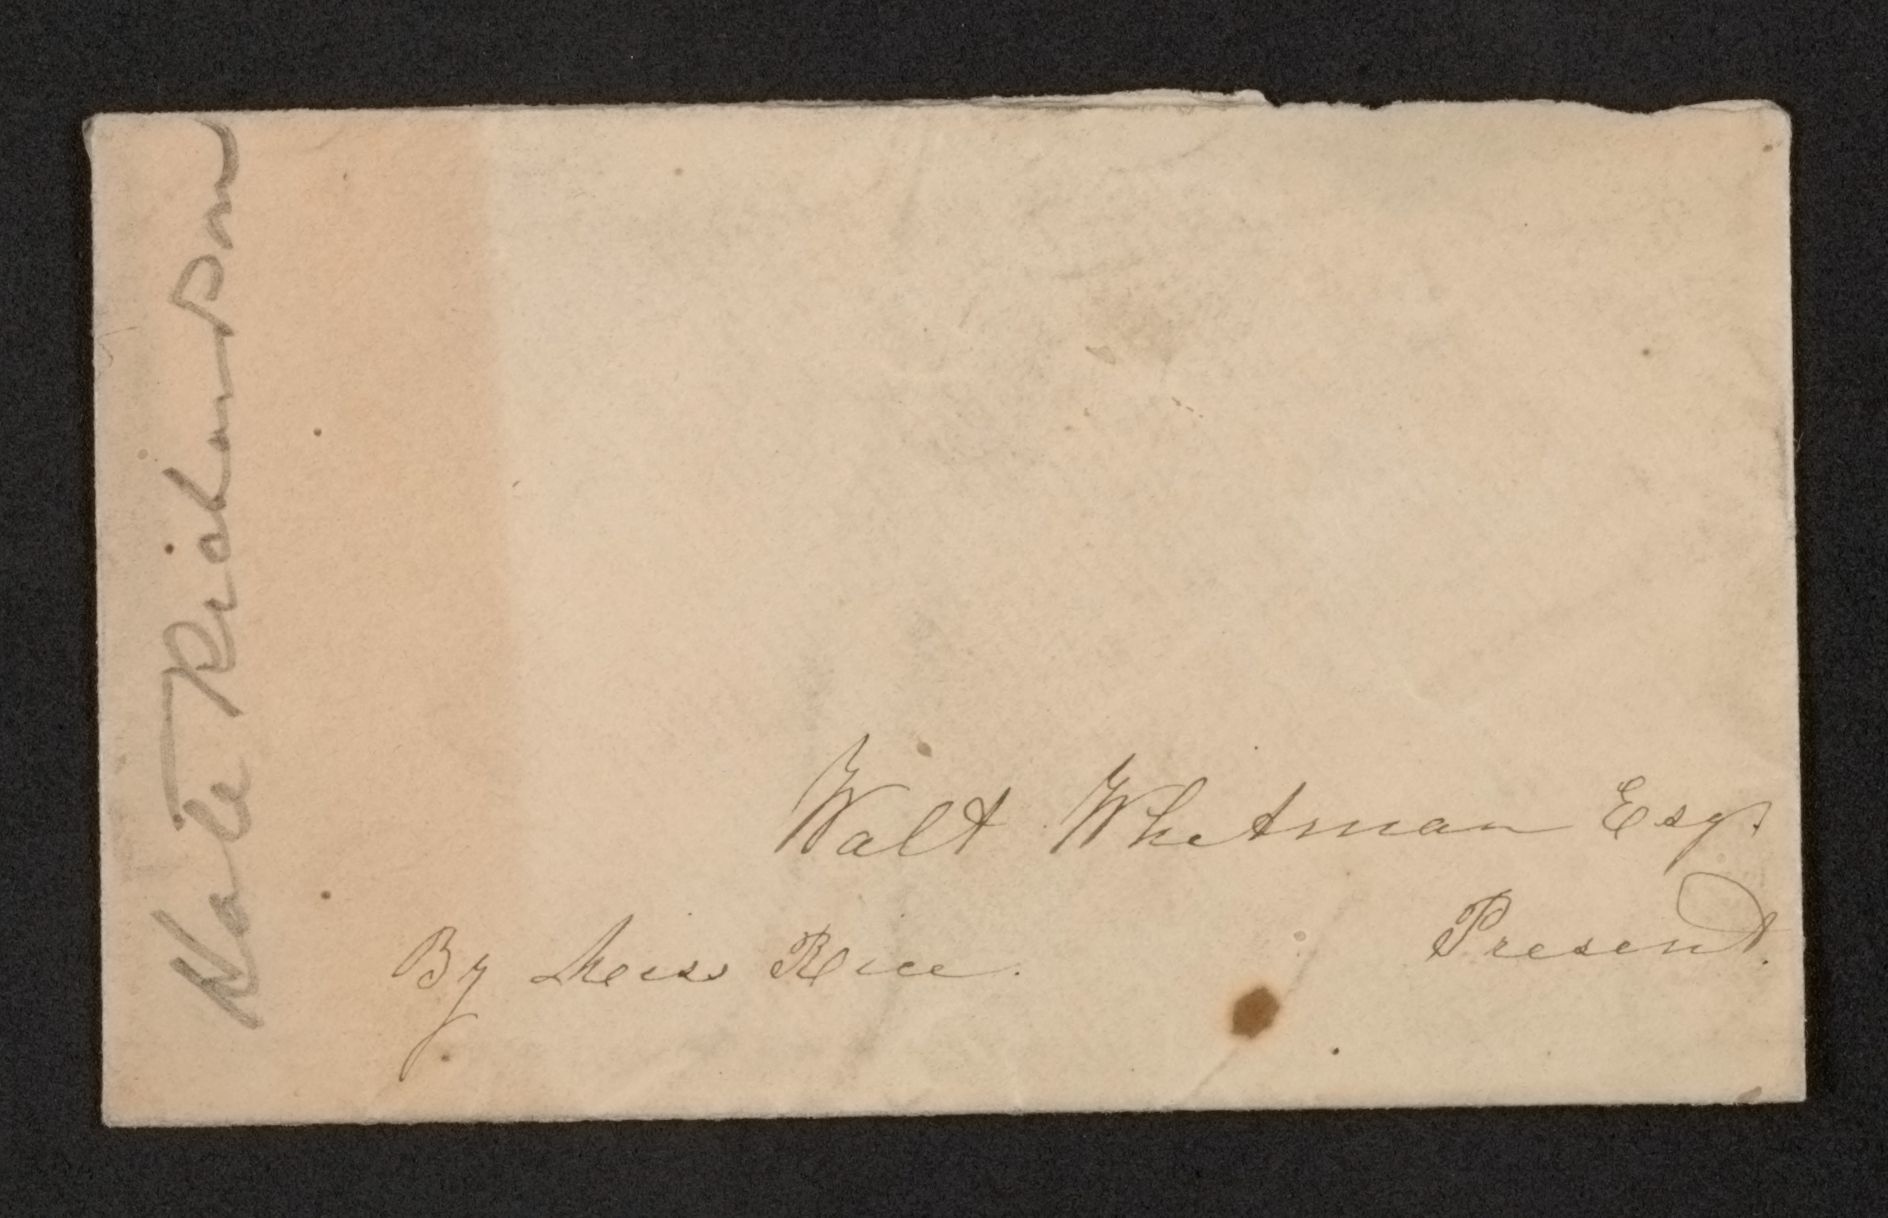 Kate Richardson
Walt Whitman Esq.
Present.
By Miss Rice.